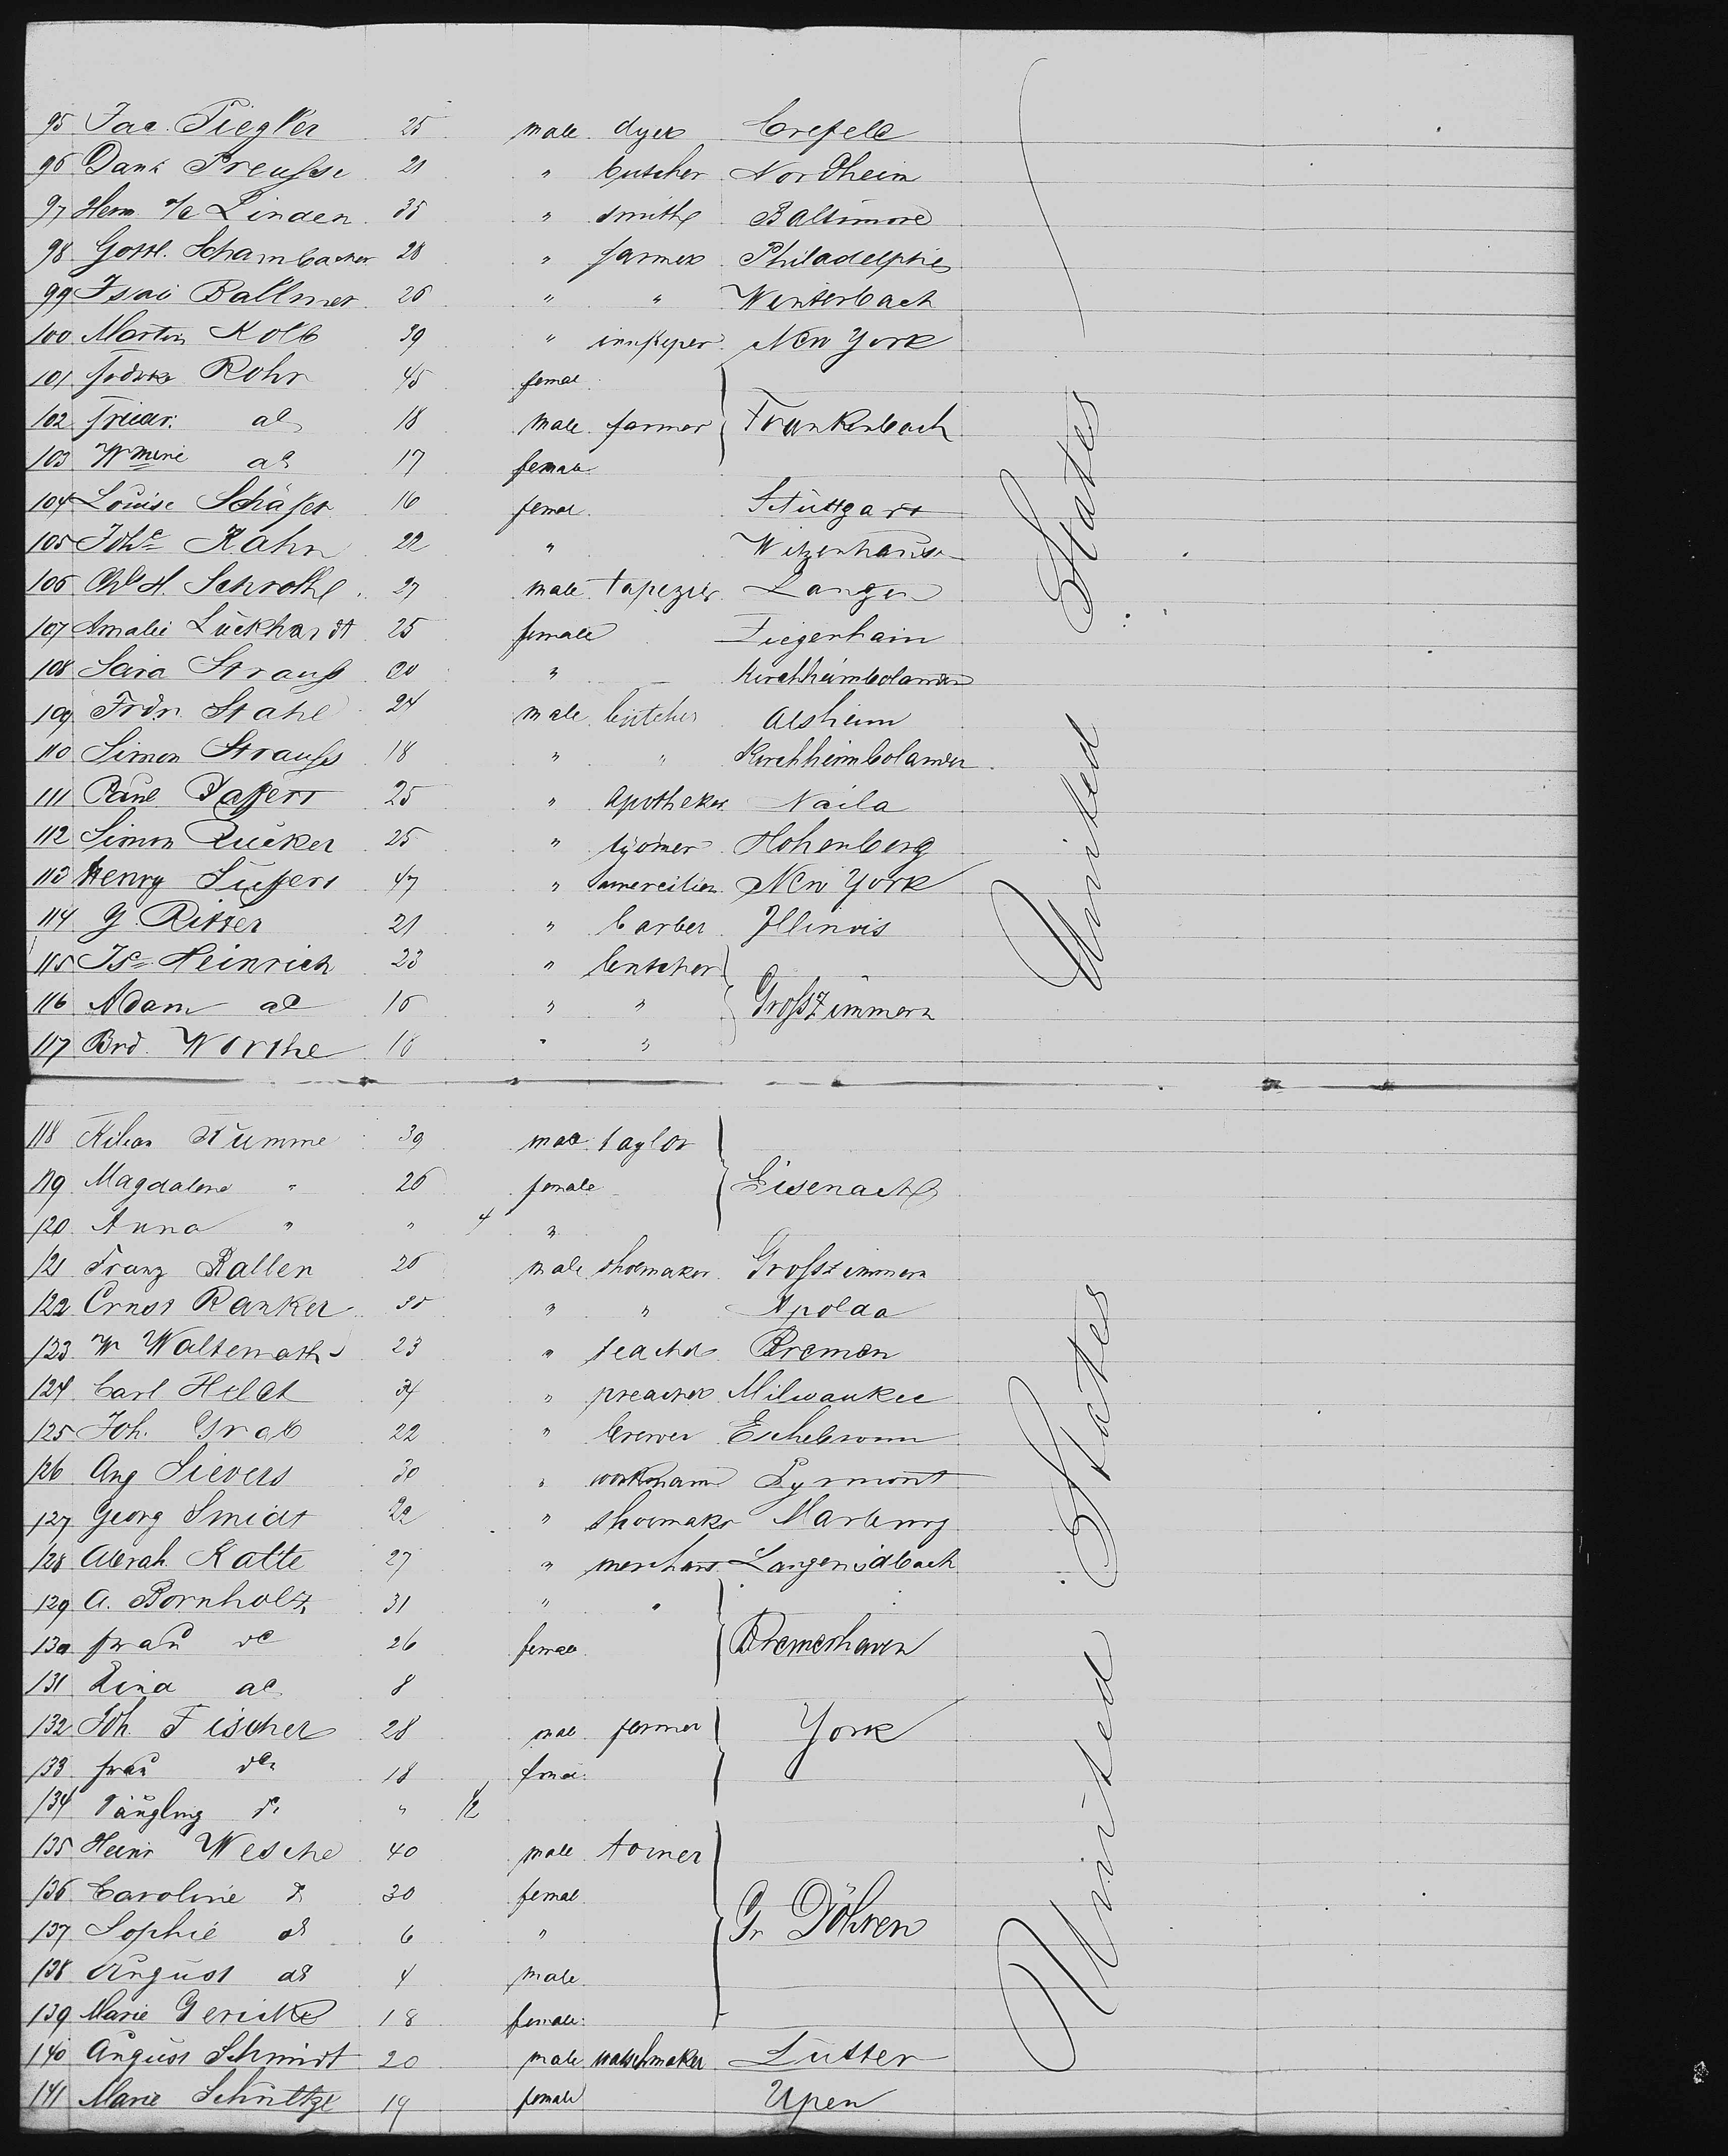 95 Jac. Piegler 25 male dyer Crefeld
96 Danl Preusse 21 " butcher Nordheim
97 Herm. v/d Linden 35 " smith Baltimore
98 Gottl. Schambacher 28 " farmer Philadelphia
99 Isai Ballmer 26 " " Winterbach
100 Martin Kolb 39 " innkeper New York
101 Rohr 45 femal
102 Friedr. do 18 male farmer Frankenbach
103 Wmine do 17 female
104 Louise Schäfer 16 femal Stuttgart
105 Johe Kahn 22 " Witzenhause
106 Chr H. Schroth 27 male tapezier Langen
107 Amalie Luckhardt 25 female Ziegenhain
108 Sara Strauss 20 " Kirchheimbolanden
109 Frdr. Stahl 24 male butcher Alsheim
110 Simon Strauss 18 " " Kirchheimbolanden
111 Paul 25 " Apotheker Naila
112 Simon Rucker 25 " Hohenberg
113 Henry 47 " New York
114 G. Ritter 21 " barber Illinois
115 Heinrich 23 " butcher
116 Adam do 16 " " Grosszimmern
117 Brd. Worthe 16 " "
United States
118 Kilian Kumme 39 male taylor
119 Magdalene " 26 female Eisenach
120 Anna " " 4 "
121 Franz Ballen 26 male shoemaker Grosszimmern
122 Ernst Ranker 30 " " Apolda
123 W Waltemath 23 " teacher Bremen
124 Carl Heldt 34 " preacher Milwaukee
125 Joh. Grab 22 " brewer Eschelbronn
126 Aug Sievers 30 " workmann Pyrmont
127 Georg Smidt 22 " shoemaker Marburg
128 Abrah. Katte 27 " merchant
129 A. Bornholtz 31 " "
130 frau do 26 female Bremerhaven
131 Lina do 8
132 Joh. Fischer 28 male farmer York
133 frau do 18 femal
134 Säugling do " 1/2
135 Heinr Wesche 40 male toiner
136 Caroline do 30 femal
137 Sophie do 6 " Gr Döhren
138 August do 4 male
139 Marie Gericke 18 female
140 August Schmidt 20 male watschmaker Lutter
141 Marie Schultze 19 female Upen
United States